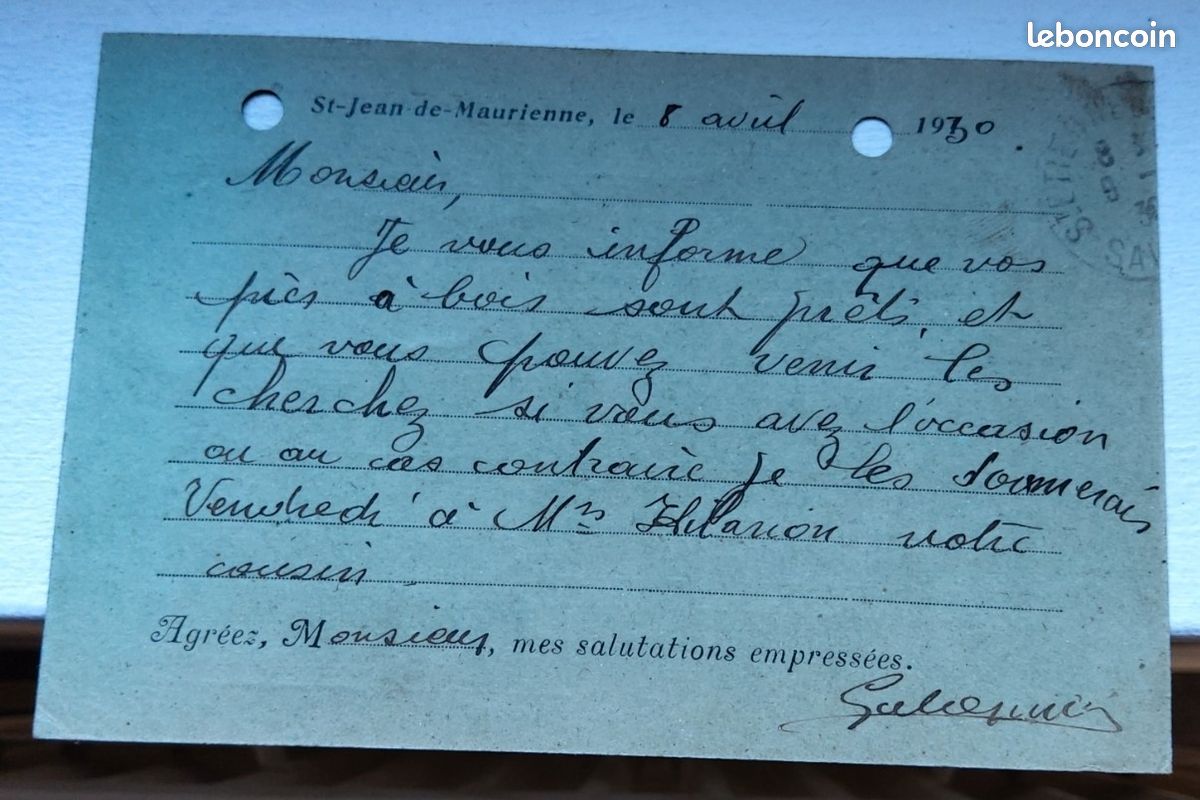 leboncoin
St-Jean-de-Maurienne, le 8 avril 1930
Monsieur,
Je vous informe que vos
pics à bois sont prêts, et
que vous pouvez venir les
cherchez si vous avez l'occasion
ou au cas contraire je les donnerais
Vendredi à Mr Hilarion votre
cousin.
Agréez, Monsieur, mes salutations empressées.